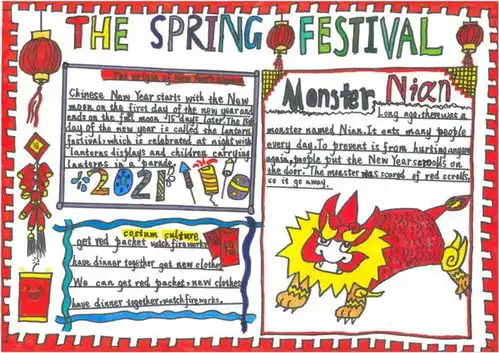 THE SPRING FESTIVAL
The origin of New Year's
Chinese New Year starts with the New
moon on the first day of the new year and
ends on the full moon 15 days later. The
day of the new year is called the lantern
festival, which is celebrated at night with
lanterns displays and children carrying
lanterns in a parade.
2021
costum culture
get red packet watch fireworks
have dinner together get new clothes
We can get red packet, new clothes
have dinner together, watch fireworks.
Monster Nian
Long ago, there was a
monster named Nian. It eats many people
every day. To prevent is from hurting anyone
again, people put the New Year scrolls on
the door. The monster was scared of red scrolls,
so it go away.